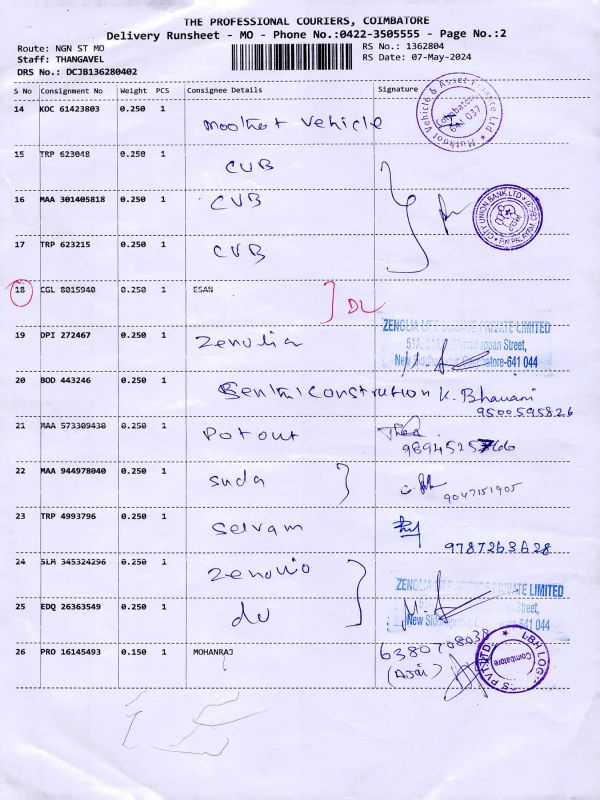 THE PROFESSIONAL COURIERS, COIMBATORE
Delivery Runsheet - MO - Phone No.:0422-3505555 - Page No.:2
Route: NGN ST MO
Staff: THANGAVEL
DRS No.: DCJB136280402
RS No.: 1362804
RS Date: 07-May-2024
S No Consignment No Weight PCS Consignee Details Signature
14 KOC 61423803 0.250 1 Vehicle
Muthoot Vehicle & Asset Finance Ltd
Coimbatore
641 037
15 TRP 623048 0.250 1 CUB
16 MAA 301405818 0.250 1 CUB
CITY UNION BANK LTD
17 TRP 623215 0.250 1 CUB
18 CGL 8015940 0.250 1 ESAN DL
19 DPI 272467 0.250 1
ZENGLIA LIFE PRIVATE LIMITED
51A, Street,
New Coimbatore-641 044
20 BOD 443246 0.250 1 construction K. Bhavani
9500595826
21 MAA 573309430 0.250 1 Potout
22 MAA 944978040 0.250 1 suda
9047151905
23 TRP 4993796 0.250 1 Selvam
9787263628
24 SLM 345324296 0.250 1
ZENGLIA PRIVATE LIMITED
Street,
New 641 044
25 EDQ 26363549 0.250 1 du
26 PRO 16145493 0.150 1 MOHANRAJ
6380708038
Coimbatore